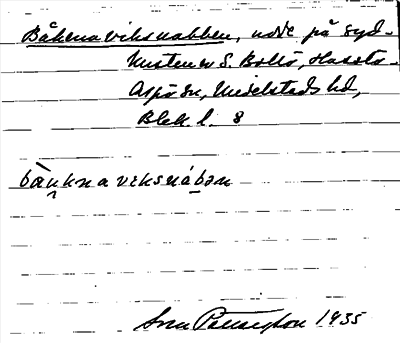 Båkenaviksnabben, udde på syd-
kusten av S. Boklö, Hasslö-
Aspö sn, Medelstads hd,
Blek. l. 8
bàu̯knaviksnábən
Sven Pettersson 1935